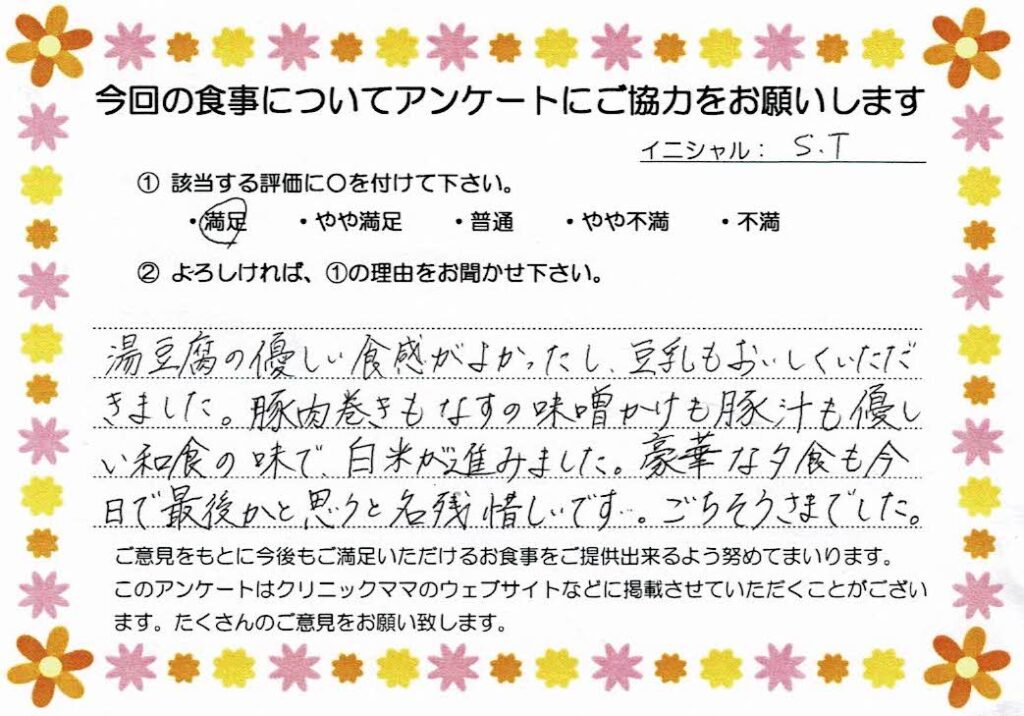 今回の食事についてアンケートにご協力をお願いします
イニシャル： S.T
① 該当する評価に〇を付けて下さい。
・満足 ・やや満足 ・普通 ・やや不満 ・不満
② よろしければ、①の理由をお聞かせ下さい。
湯豆腐の優しい食感がよかったし、豆乳もおいしくいただ
きました。豚肉巻きもなすの味噌かけも豚汁も優し
い和食の味で、白米が進みました。豪華な夕食も今
日で最後かと思うと名残惜しいです…。ごちそうさまでした。
ご意見をもとに今後もご満足いただけるお食事をご提供出来るよう努めてまいります。
このアンケートはクリニックママのウェブサイトなどに掲載させていただくことがござい
ます。たくさんのご意見をお願い致します。